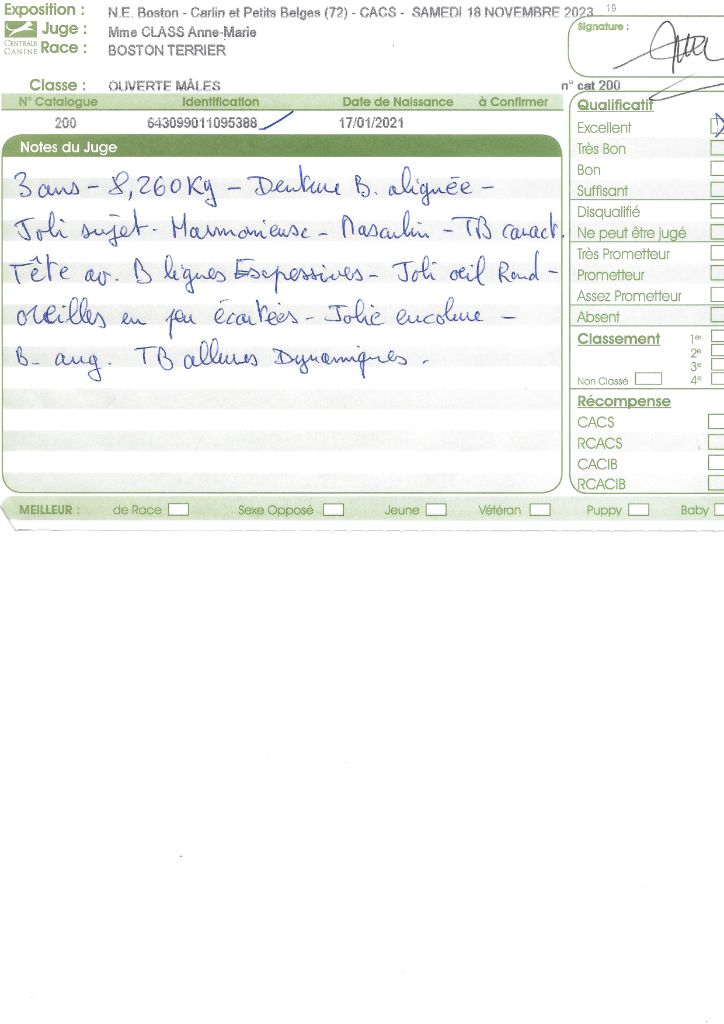 Exposition : N.E. Boston - Carlin et Petits Belges (72) - CACS - SAMEDI 18 NOVEMBRE 2023 19
Juge : Mme CLASS Anne-Marie
CENTRALE CANINE
Race : BOSTON TERRIER
Signature :
Classe : OUVERTE MÂLES n° cat 200
N° Catalogue Identification Date de Naissance à Confirmer
200 643099011095388 17/01/2021
Notes du Juge
3 ans - 8,260Kg - Denture B. alignée -
Joli sujet - Harmonieuse - Masculin - TB caract.
Tête av. B lignes Expressives - Joli oeil Rond -
Oreilles en peu écartées - Jolie encolure -
B. ang. TB allures Dynamiques .
Qualificatif
Excellent
Très Bon
Bon
Suffisant
Disqualifié
Ne peut être jugé
Très Prometteur
Prometteur
Assez Prometteur
Absent
Classement 1er
2e
3e
Non Classé 4e
Récompense
CACS
RCACS
CACIB
RCACIB
MEILLEUR : de Race Sexe Opposé Jeune Vétéran Puppy Baby